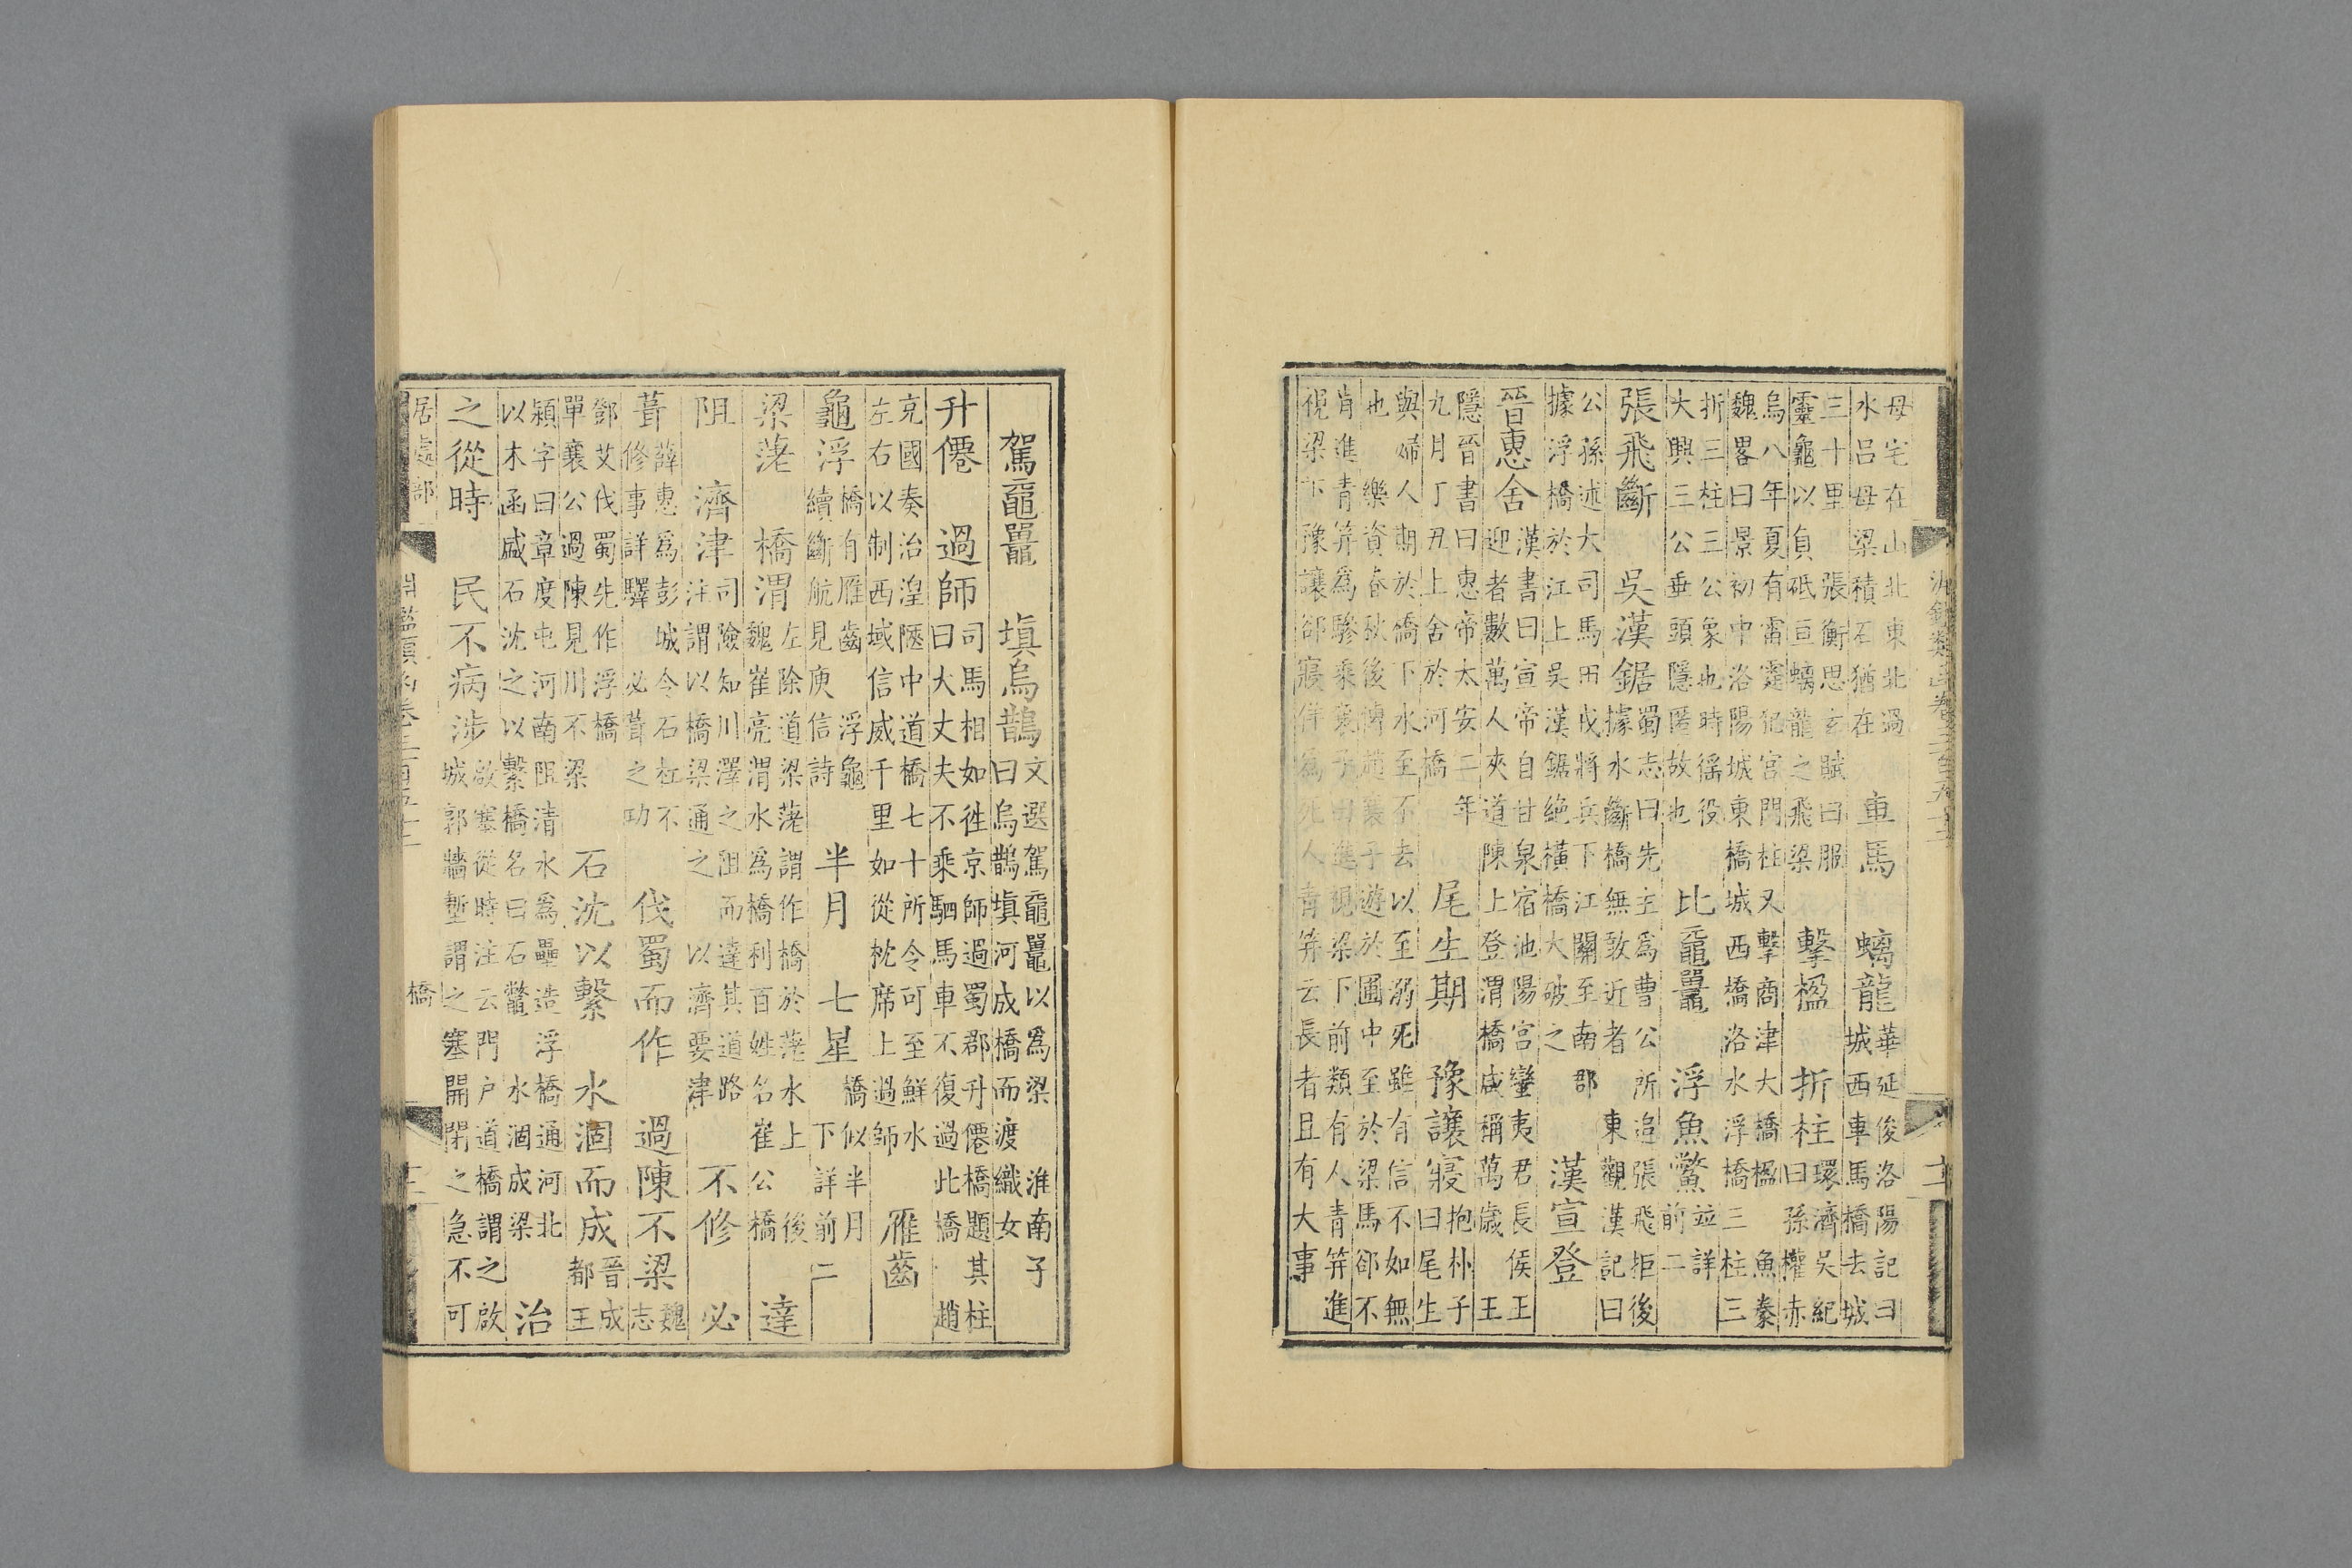 母宅在山北東北過水呂母梁積石猶在 車馬 螭龍 華延俊洛陽記曰城西車馬橋去城
三十里 張衡思玄賦曰服靈龜以負砥亘螭龍之飛梁 擊楹 折柱 環濟吳紀曰孫權赤
烏八年夏有雷霆犯宮門柱又擊商津大橋楹 魚豢魏畧曰景初中洛陽城東橋城西橋洛水浮橋三柱三
折三柱三公象也時徭役大興三公垂頭隱匿故也 比黿鼉 浮魚鱉 並詳前二
張飛斷 吳漢鋸 蜀志曰先主為曹公所追張飛拒後據水斷橋無敢近者 東觀漢記曰
公孫述大司馬田戎將兵下江關至南郡據浮橋於江上吳漢鋸絕橫橋大破之 漢宣登
晉惠舍 漢書曰宣帝自甘泉宿池陽宮蠻夷君長侯王迎者數萬人夾道陳上登渭橋咸稱萬歲 王
隱晉書曰惠帝太安二年九月丁丑上舍於河橋 尾生期 豫讓寢 抱朴子曰尾生
與婦人期於橋下水至不去以至溺死雖有信不如無也 樂資春秋後傳趙襄子遊於囿中至於梁馬郤不
肯進青笄為驂乘襄子曰進視梁下前類有人青笄進視梁下豫讓郤寢佯為死人青笄云長者且有大事
駕黿鼉 填烏鵲 文選駕黿鼉以為梁 淮南子曰烏鵲填河成橋而渡織女
升僊 過師 司馬相如徃京師過蜀郡升僊橋題其柱曰大丈夫不乘駟馬車不復過此橋 趙
充國奏治湟陿中道橋七十所令可至鮮水左右以制西域信威千里如從枕席上過師 雁齒
龜浮 橋有雁齒 浮龜續斷航見庾信詩 半月 七星 橋似半月下詳前二
梁溠 橋渭 左除道梁溠謂作橋於溠水上 後魏崔亮渭水為橋利百姓名崔公橋 達
阻 濟津 司險知川澤之阻而達其道路注謂以橋梁通之 以濟要津 不修 必
葺 薛惠為彭城令石杠不修事詳驛 必葺之功 伐蜀而作 過陳不梁 魏志
鄧艾伐蜀先作浮橋 單襄公過陳見川不梁 石沈以繫 水涸而成 晉成都王
潁字曰章度屯河南阻清水為壘造浮橋通河北以木函盛石沈之以繫橋名曰石鼈 水涸成梁 治
之從時 民不病涉 啟塞從時注云門户道橋謂之啟城郭牆塹謂之塞開閉之急不可
居處部 橋